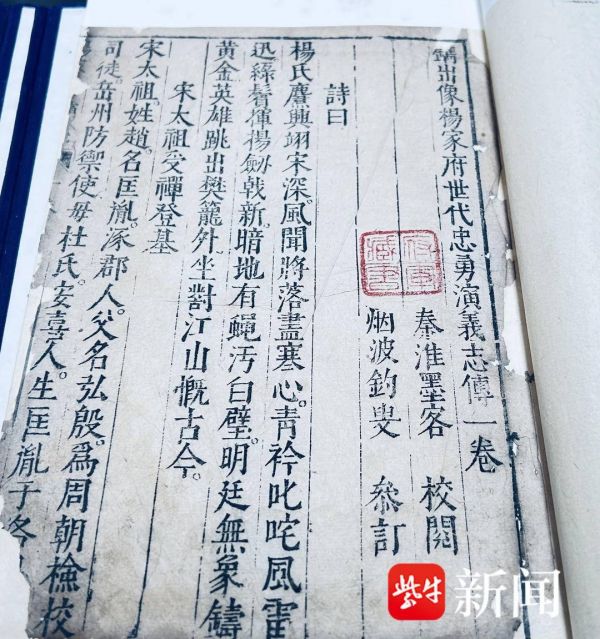 鐫出像楊家府世代忠勇演義志傳一卷
秦淮墨客 校閱
烟波釣叟 叅訂
詩曰
楊氏興翊宋深。風聞將落盡寒心。青衿叱咤風雷
迅。綠鬢揮楊劔戟新。暗地有蠅汚白璧。明廷無象鑄
黃金。英雄跳出樊籠外。坐對江山慨古今。
宋太祖受禪登基
宋太祖。姓趙。名匡胤。涿郡人。父名弘殷。爲周朝檢校
司徒。岳州防禦使。母杜氏。安喜人。生匡胤于
紫牛新闻